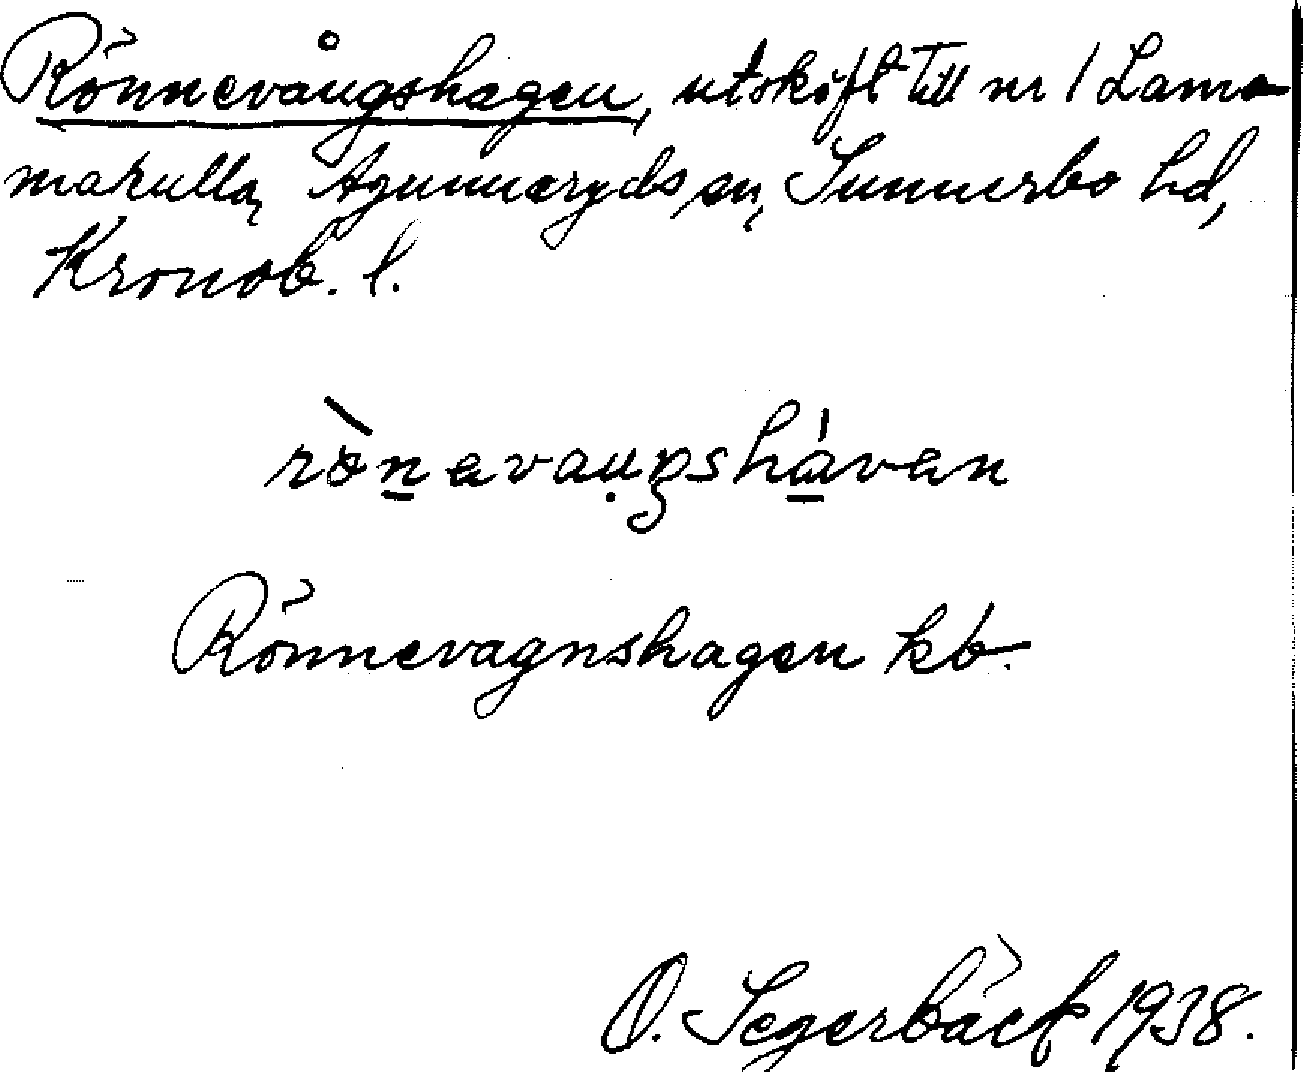 Rönnevångshagen, utskift till nr 1 Lamm-
makulla, Agunnaryds sn, Sunnerbo hd,
Kronob. l.
rö̀nevaųŋshávan
Rönnevagnshagen kb.
O. Segerbäck 1938.